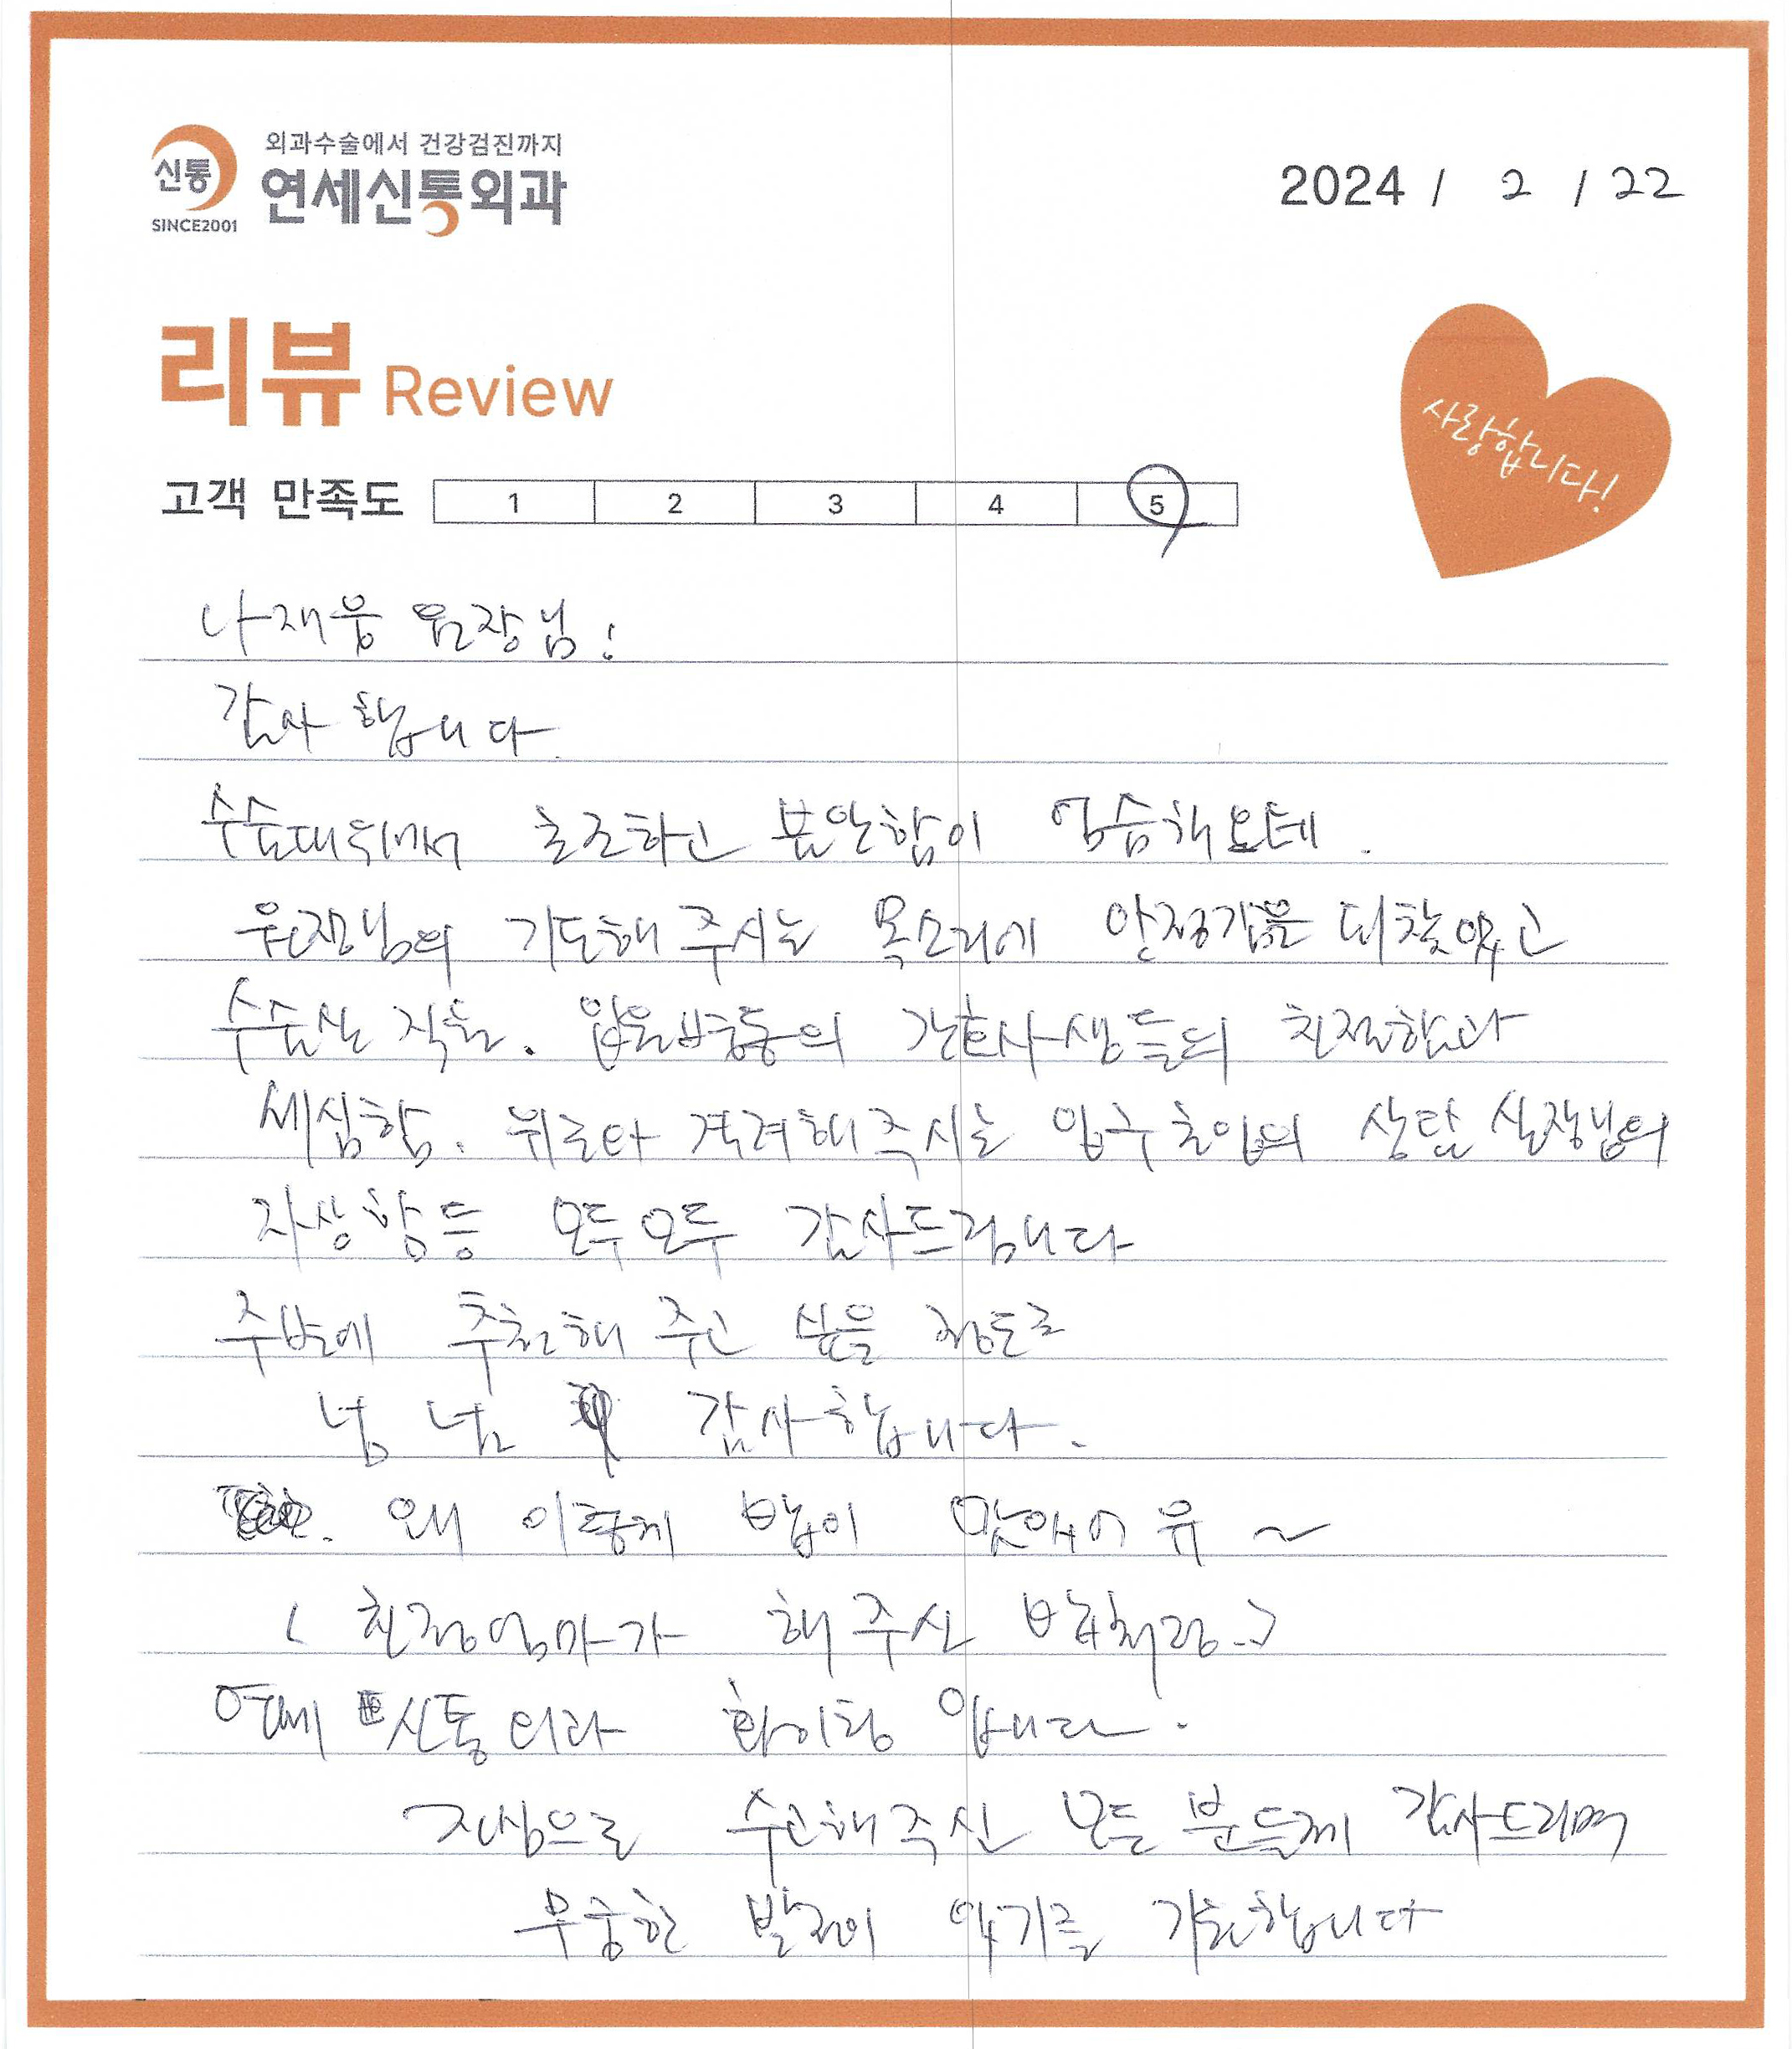 외과수술에서 건강검진까지
신통
연세신통외과
SINCE2001
2024 / 2 / 22
리뷰 Review
사랑합니다!
고객 만족도 1 2 3 4 5
나재웅 원장님!
감사 합니다.
수술대위에서 초조하고 불안함이 엄습해 올테.
원장님의 기도해 주시는 목소리에 안정감을 되찾았고
수술실 직원. 입원병동의 간호사샘들의 친절함과
세심함. 위로와 격려해주시는 입구 초입의 상담 실장님의
자상함 등 모두모두 감사드립니다
주변에 추천해 주고 싶을 정도로
넘 넘 감사합니다.
왜 이렇게 밥이 맛있어유 ~
( 친정엄마가 해 주신 밥처럼..)
연세 신통외과 화이팅 입니다.
진심으로 수고해주신 모든 분들께 감사드리며
무궁한 발전이 있기를 기원합니다